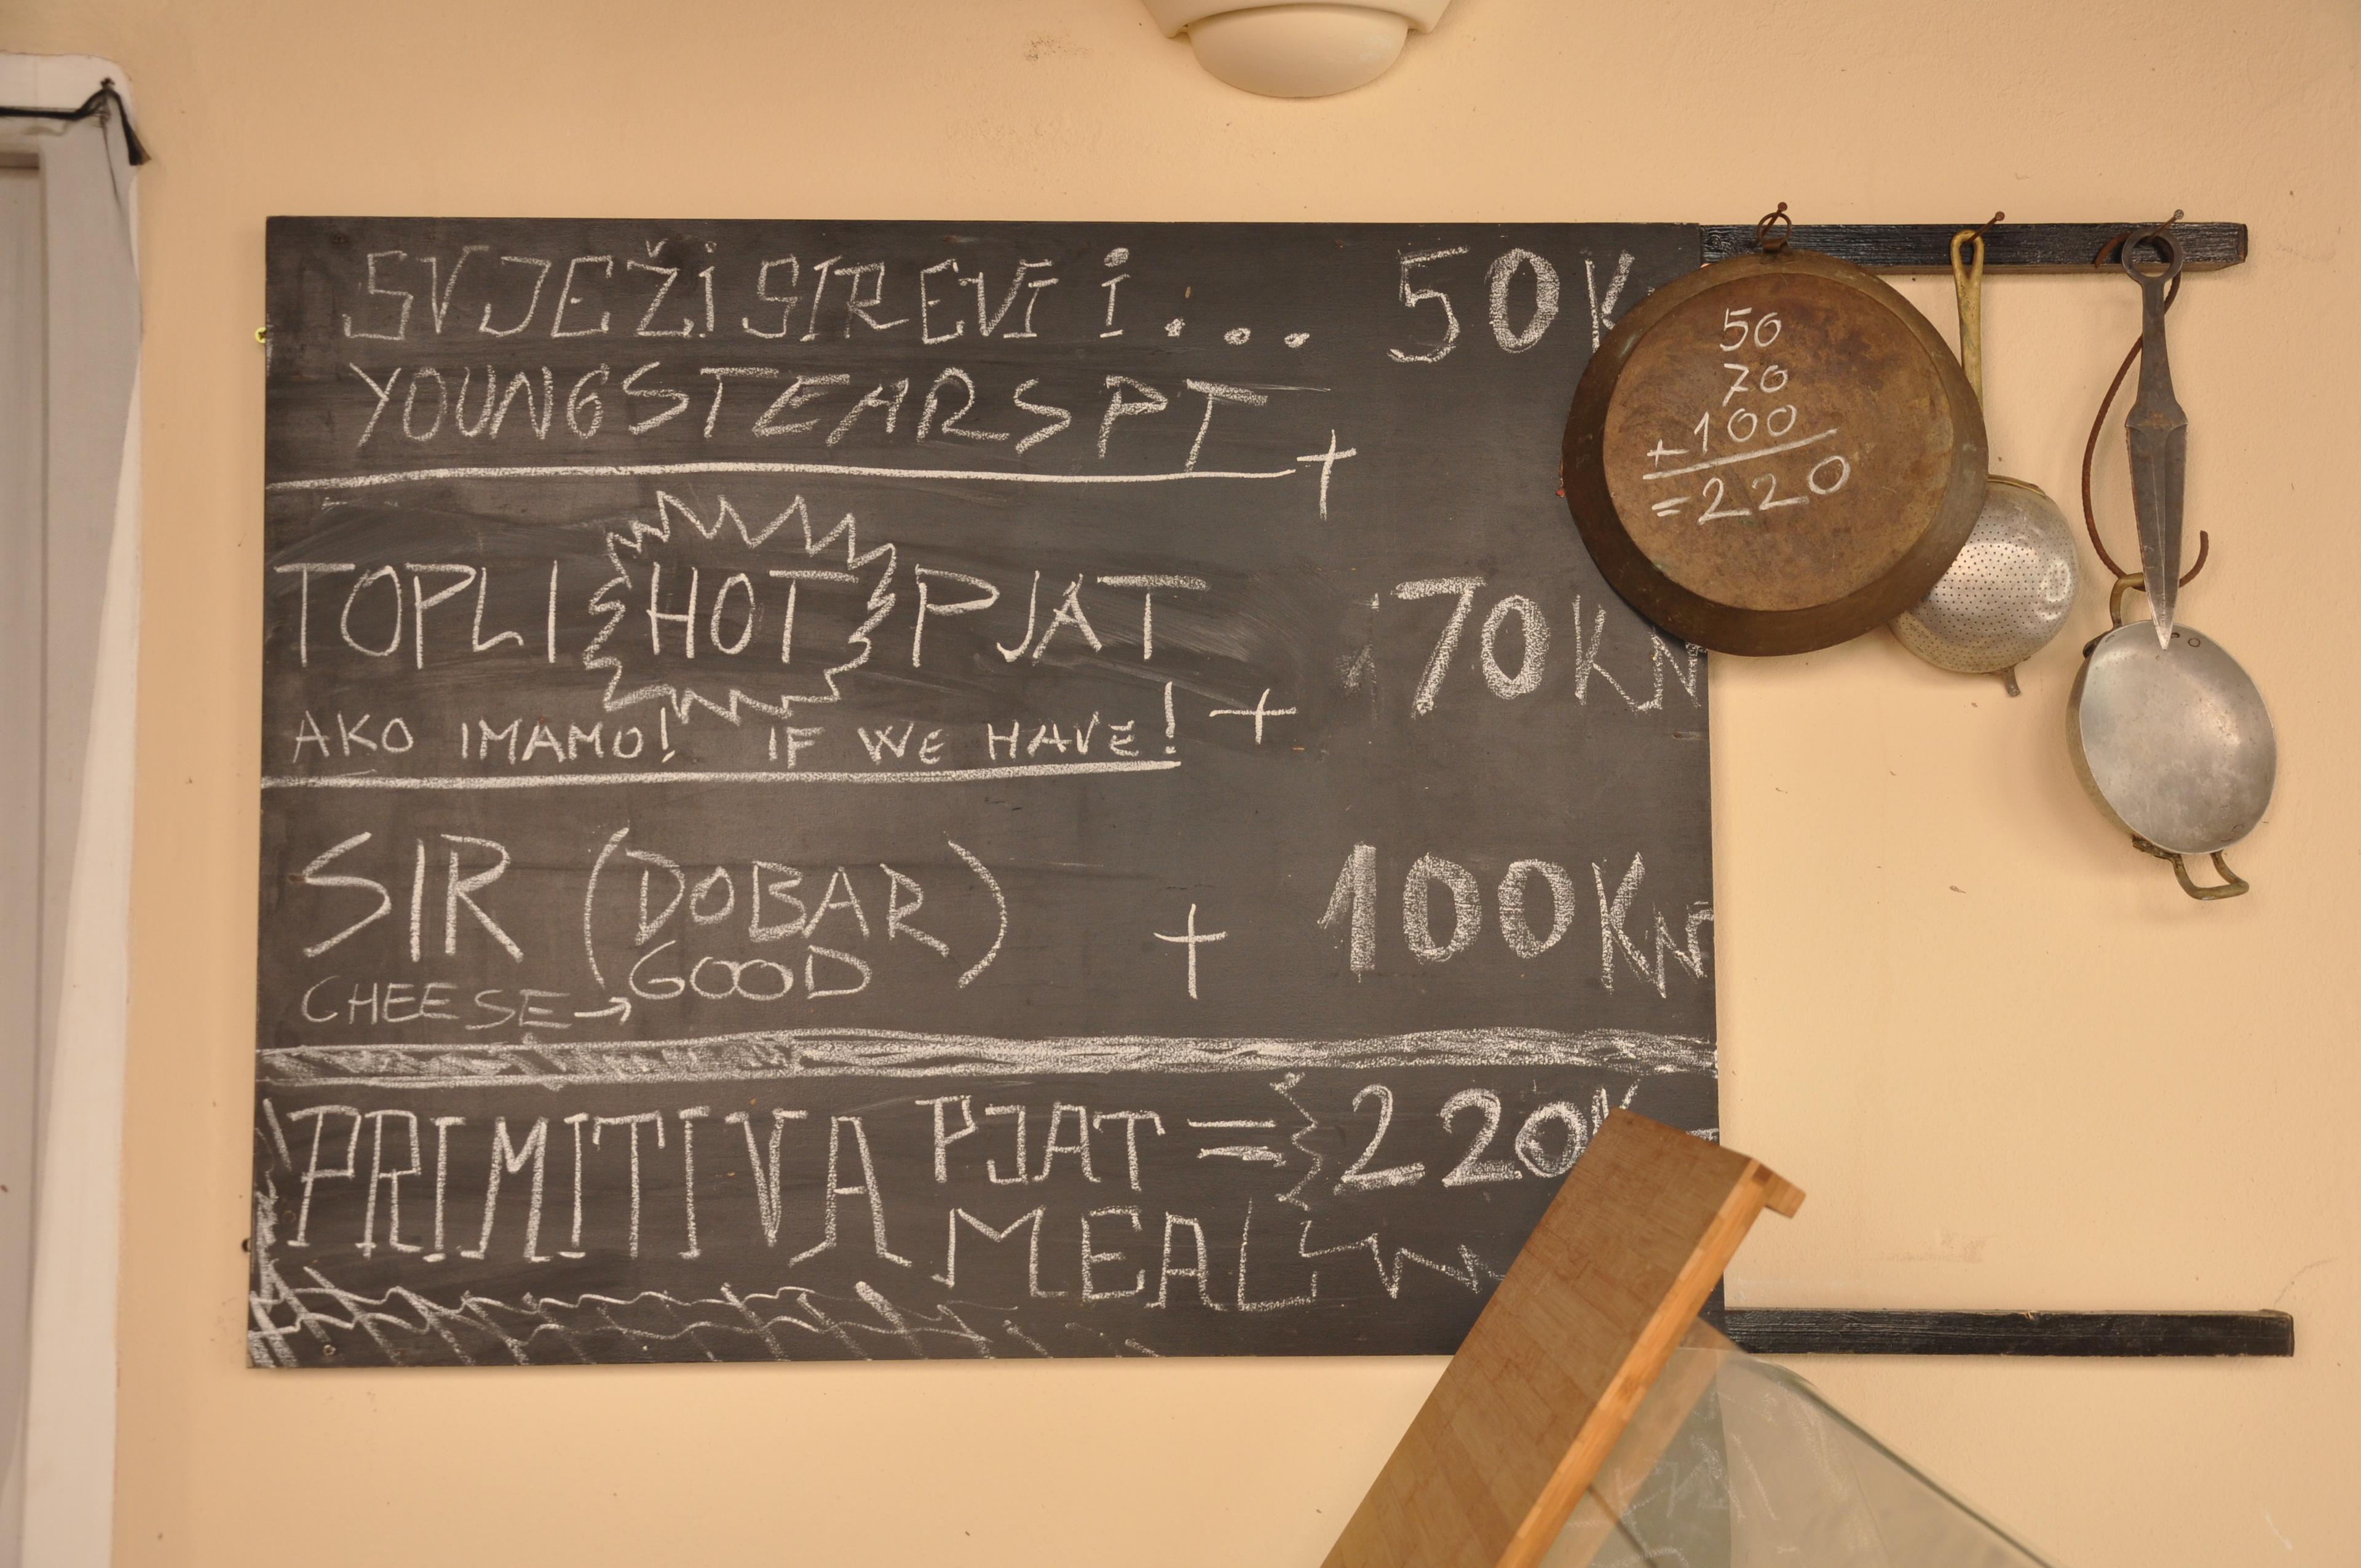 SVJEŽI SIREVI i... 50K
YOUNGSTEARS PT +
TOPLI HOT PJAT 70KN
AKO IMAMO! IF WE HAVE! +
SIR (DOBAR) + 100KN
CHEESE → GOOD
PRIMITIVA PJAT = 220K
MEAL
50
70
+100
=220